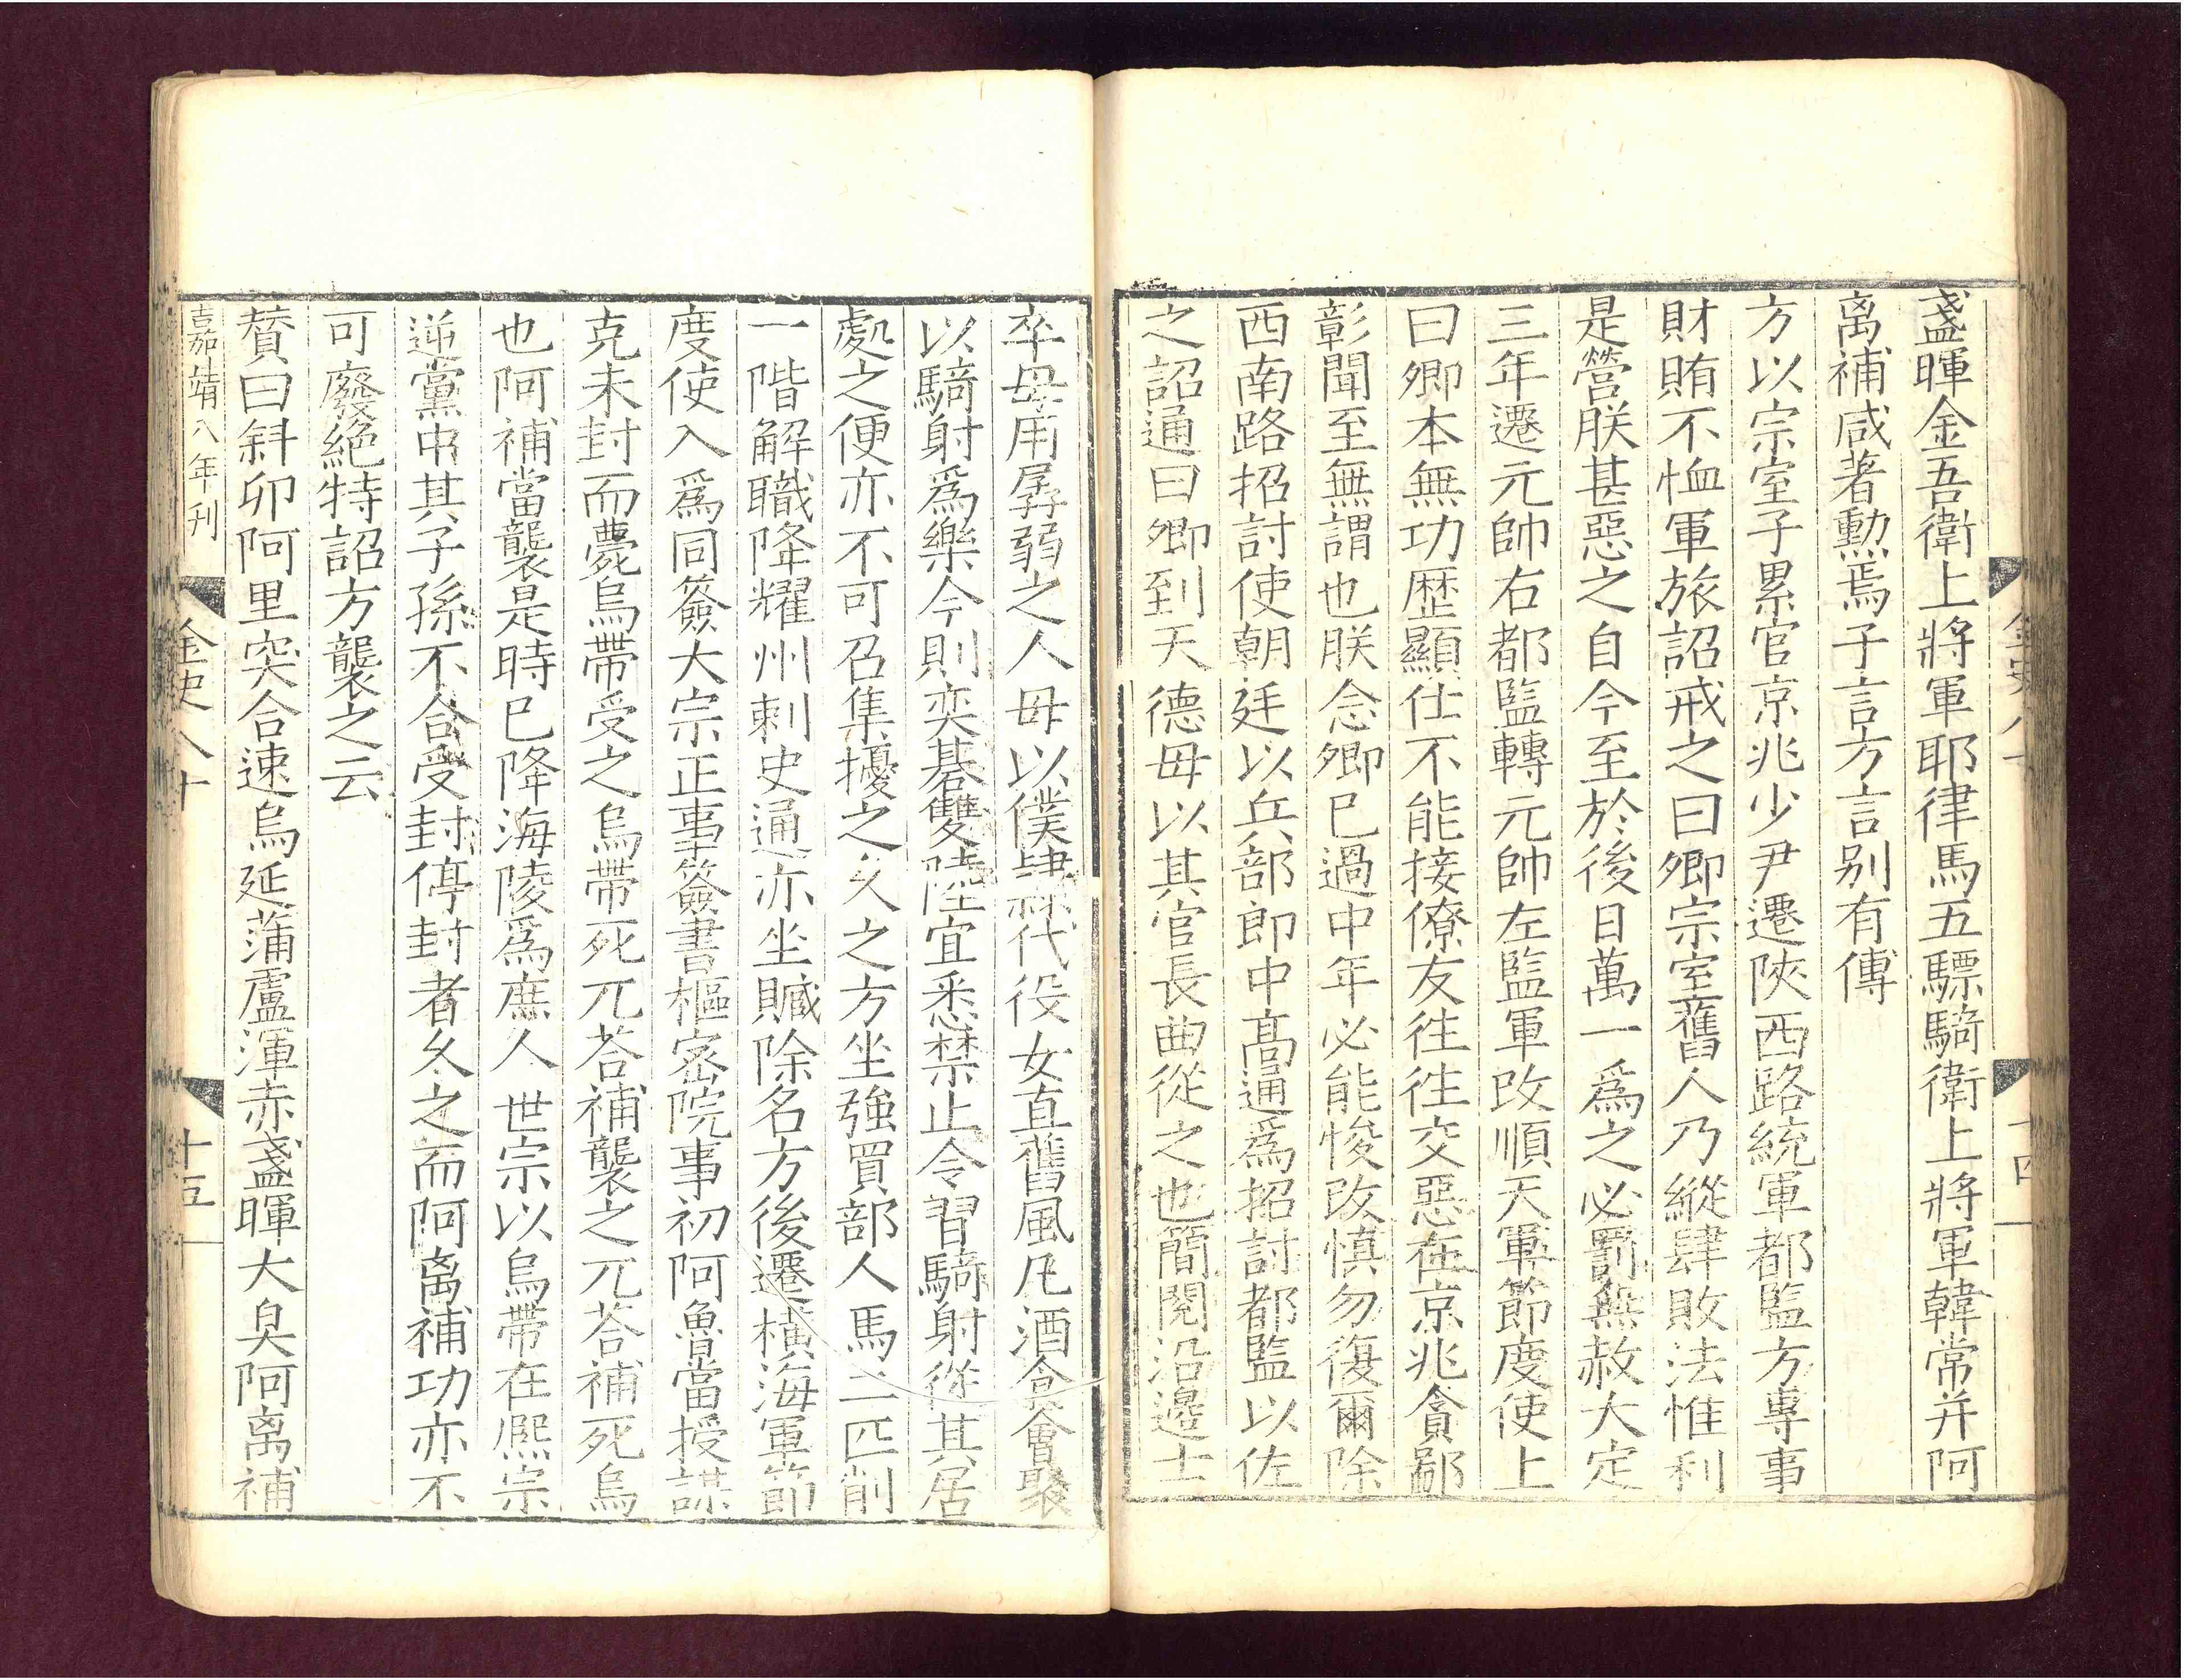 盞暉金吾衛上將軍耶律馬五驃騎衛上將軍韓常并阿
离補咸著勲焉子言方言别有傳
方以宗室子累官京兆少尹遷陜西路統軍都監方專事
財賄不恤軍旅詔戒之曰卿宗室舊人乃縱肆敗法惟利
是營朕甚惡之自今至於後日萬一爲之必罰無赦大定
三年遷元帥右都監轉元帥左監軍改順天軍節度使上
曰卿本無功歴顯仕不能接僚友往往交惡在京兆貪鄙
彰聞至無謂也朕念卿巳過中年必能悛改慎勿復爾除
西南路招討使朝廷以兵部郎中高通爲招討都監以佐
之詔通曰卿到天德毋以其官長曲從之也簡閱沿邊士
金史八十
十四
卒毋用孱弱之人毋以僕隸代役女直舊風凡酒食會聚
以騎射爲樂今則奕碁雙陸宜悉禁止令習騎射從其居
處之便亦不可召集擾之久之方坐強買部人馬二匹削
一階解職降耀州刺史通亦坐贓除名方後遷橫海軍節
度使入爲同簽大宗正事簽書樞密院事初阿魯當授謀
克未封而薨烏帶受之烏帶死兀荅補襲之兀荅補死烏
也阿補當襲是時巳降海陵爲庶人世宗以烏帶在熈宗
逆黨中其子孫不合受封停封者久之而阿离補功亦不
可廢絶特詔方襲之云
賛曰斜卯阿里突合速烏延蒲盧渾赤盞暉大臭阿离補
嘉靖八年刊
金史八十
十五